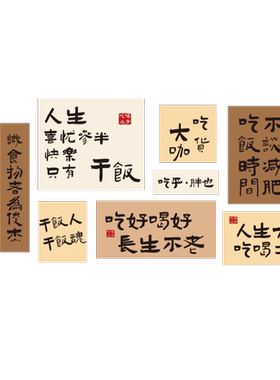 識食物者為俊杰
人生
喜忧參半
快樂
只有
干飯
吃貨
大咖
吃乎·胖也
不談減肥
吃飯時間
干飯人
干飯魂
吃好喝好
長生不老
人生
吃喝